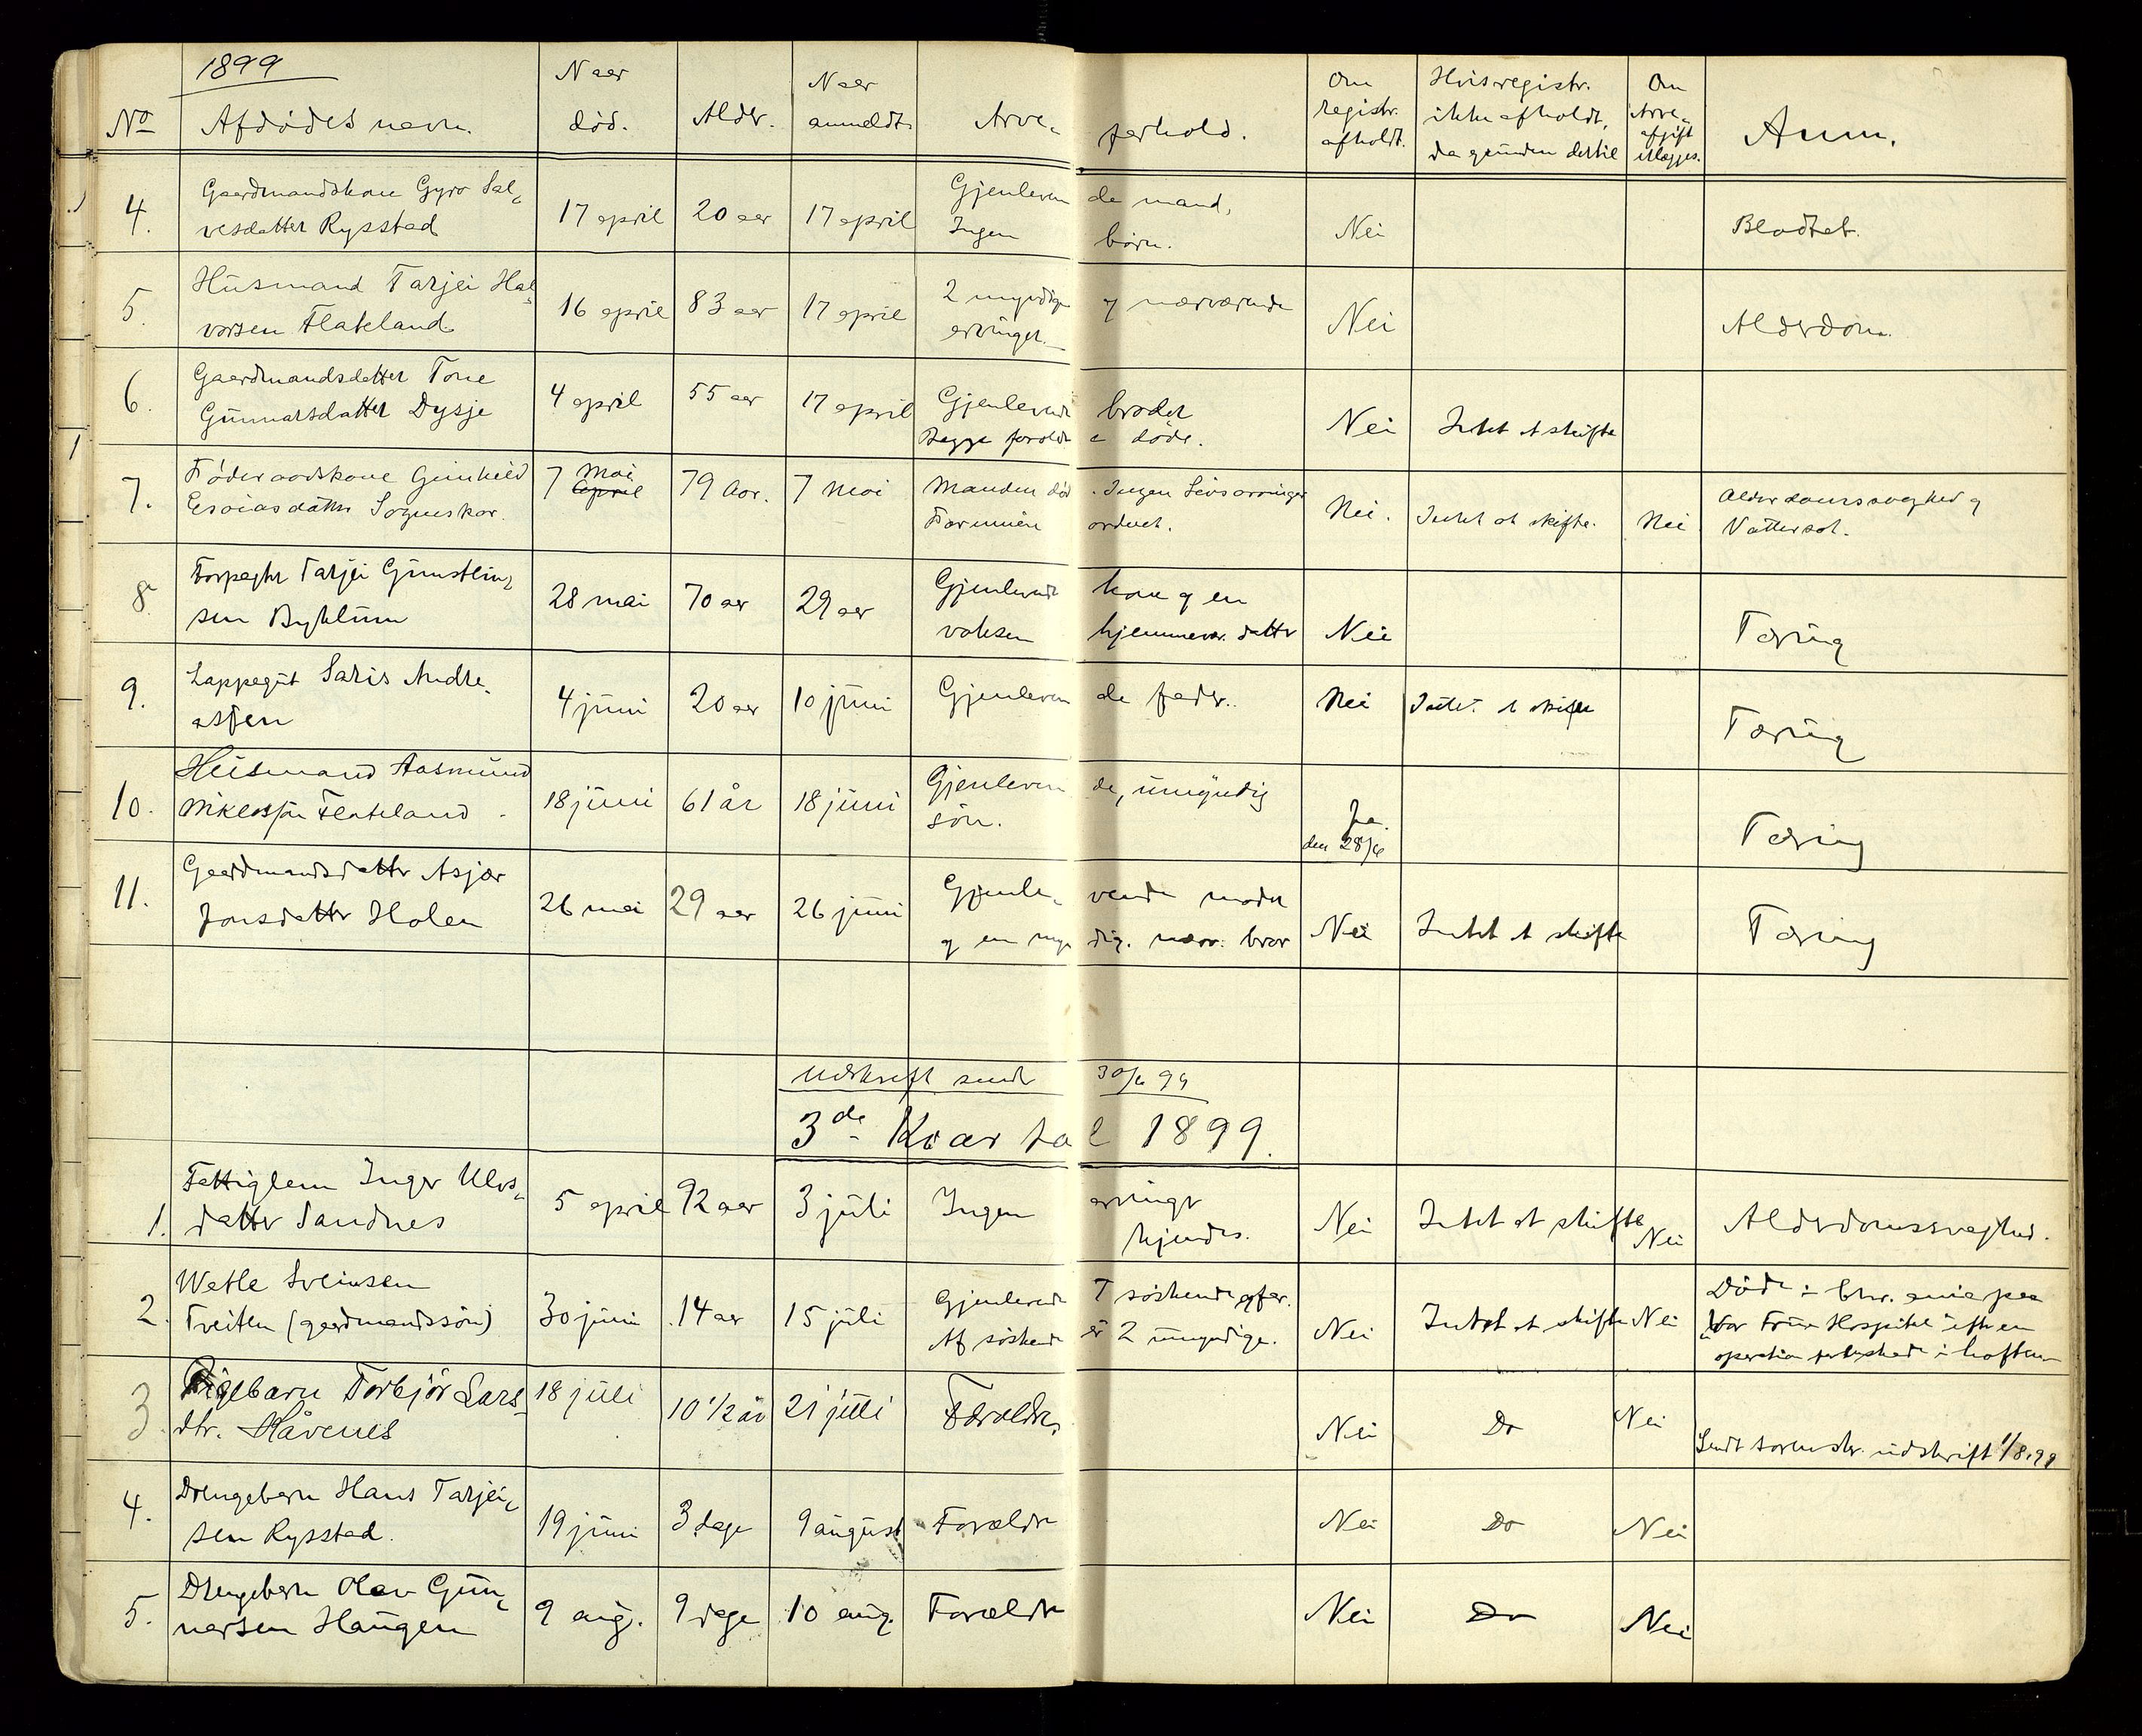 1899
No Afdødes navn. Naar død. Alder. Naar anmeldt. Arve- forhold. Om registr. afholdt. Hvis registr. ikke afholdt, da grunden dertil Om Arve- afgift ilægges. Anm.
4. Gaardmandskone Gyro Sal- 17 april 20 aar 17 april Gjenleven de mand, Nei Blodtab.
vesdatter Rysstad Ingen børn.
5. Husmand Tarjei Hal- 16 april 83 aar 17 april 2 myndige og nærværende Nei Alderdom.
vorsen Flateland arvinger.
6. Gaardmandsdatter Tone 4 april 55 aar 17 april Gjenlevende broder Nei Intet at skifte
Gunnarsdatter Dysje Begge foreldr e døde.
7. Føderaadskone Gunhild 7 Mai april 79 Aar. 7 Mai Manden død. Ingen Livsarvinger Nei. Intet at skifte. Nei Alderdomssvaghed og
Esaiasdatter Sogneskar. Formuen ordnet. Vattersot.
8. Forpagter Tarjei Gunstein- 28 mai 70 aar 29 aar Gjenlevende kone og en Nei Tæring
sen Byklum voksen hjemmevær. datter
9. Lappegut Saris Andre- 4 juni 20 aar 10 juni Gjenleven de fader. Nei Intet at skifte Tæring
assen
10. Husmand Aasmund 18 juni 61 år 18 juni Gjenleven de, umyndig Ja. Tæring
Nikolssøn Flateland søn. den 28/6
11. Gaardmandsdatter Asjær 26 mai 29 aar 26 juni Gjenle- vende moder Nei Intet at skifte Tæring
Jonsdatter Holen og en myn dig. nærv. bror
Udskrift sendt 30/6 99
3de Kvartal 1899.
1. Fattiglem Inger Ulvs- 5 april 92 aar 3 juli Ingen arvinger Nei Intet at skifte Nei Alderdomssvaghed.
datter Sandnes kjendes.
2. Wetle Sveinsen 30 juni 14 aar 15 juli Gjenlevende 7 søskende og far. Nei Intet at skifte Nei Døde i Chr. ania paa
Tveiten (gaardmandssøn) Af søskend er 2 umyndige. Vor Frue Hospital efter en
operation i hoften
3. Pigebarn Torbjør Lars- 18 juli 10 1/2 år 21 juli Forældre Nei Do Nei
dtr. Håvenes Sendt sorenskr. udskrift 1/8.99
4. Drengebarn Hans Tarjei- 19 juni 3 dage 9 august Forældre Nei Do Nei
sen Rysstad.
5. Drengebarn Olav Gun- 9 aug. 9 dage 10 aug. Forældre Nei Do Nei
narsen Haugen